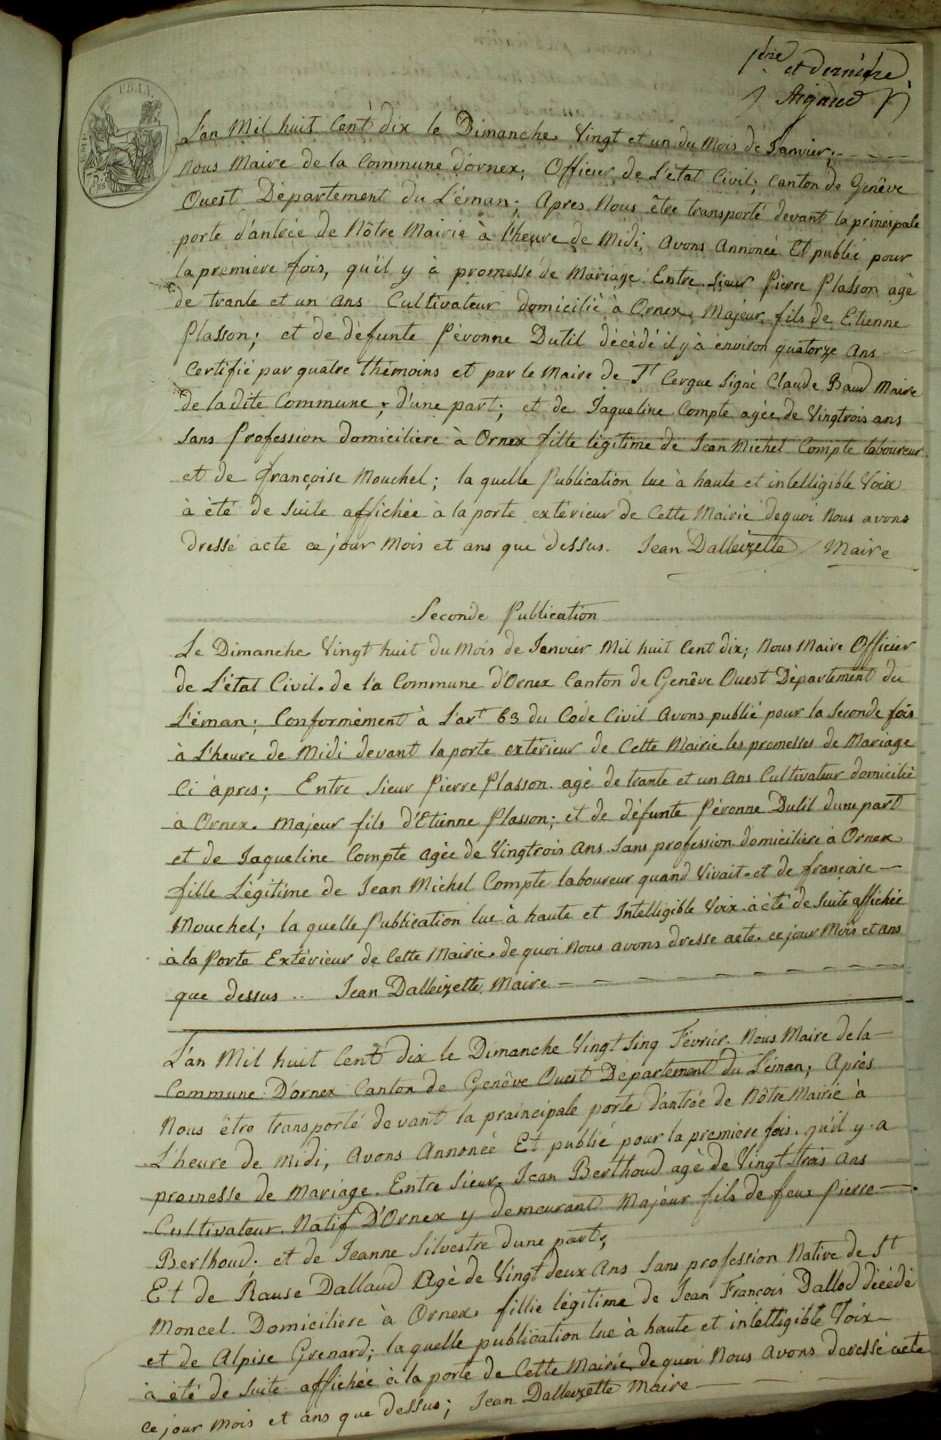 1ère et dernière
Aigned
L'an Mil huit Cent dix le Dimanche Vingt et un du Mois de Janvier;
Nous Maire de la Commune d'ornex, Officier de L'état Civil, Canton de Genêve
Ouest Département du Léman; Apres Nous être transporté devant la principale
porte d'antrée de Nôtre Mairie à l'heure de Midi, Avons Annoncé Et publié pour
la premiere fois, qu'il y à promesse de Mariage Entre Sieur Pierre Plasson agé
de trante et un Ans Cultivateur domicilié à Ornex, Majeur fils de Etienne
Plasson; et de défunte Pévonne Dutil décédé il y à environ quatorze Ans
Certifié par quatre themoins et par le Maire de St Cergue Signé Claude Baud Maire
de la dite Commune; d'une part; et de Jaqueline Compte agée de Vingtrois ans
Sans Profession domiciliere à Ornex fille légitime de Jean Michel Compte laboureur
et de françoise Mouchel; la quelle Publication lue à haute et intelligible Voix
à été de Suite affichée à la porte extérieur de Cette Mairie dequoi Nous avons
dressé acte ce jour Mois et ans que dessus. Jean Dalleizette Maire
Seconde Publication
Le Dimanche Vingt huit du Mois de Janvier Mil huit Cent dix; Nous Maire Officier
de L'état Civil de la Commune d'Ornex Canton de Genêve Ouest Département du
Léman; Conformément à L'art 63 du Code Civil Avons publié pour la Seconde fois
à L'heure de Midi devant la porte extérieur de Cette Mairie les promesses de Mariage
Ci àpres; Entre Sieur Pierre Plasson agé de trante et un Ans Cultivateur domicilié
à Ornex. Majeur fils d'Etienne Plasson; et de défunte Pévonne Dutil dune part
et de Jaqueline Compte agée de Vingtrois Ans Sans profession domiciliere à Ornex
fille Légitime de Jean Michel Compte laboureur quand Vivait et de françoise
Mouchel; la quelle Publication lue à haute et Intelligible Voix à été de Suite affichée
à la Porte Extérieur de Cette Mairie de quoi Nous avons dresse acte ce jour Mois et ans
que dessus .. Jean Dalleizette Maire
L'an Mil huit Cent dix le Dimanche Vingt Sinq Février Nous Maire de la
Commune D'ornex Canton de Genêve Ouest Département du Léman; Après
Nous être transporté devant la praincipale porte d'antrée de Nôtre Mairie à
L'heure de Midi, Avons Annoncé Et publié pour la premiere fois. qu'il y a
promesse de Mariage. Entre Sieur Jean Berthoud agé de Vingt trois Ans
Cultivateur Natif D'Ornex y demeurant Majeur fils de feux Pierre
Berthoud. et de Jeanne Silvestre dune part;
Et de Rause Dallaud Agé de Vingt deux Ans Sans profession Native de St
Moncel Domiciliere à Ornex fillie légitime de Jean François Dallod décédé
et de Alpise Grenard; la quelle publication lue à haute et intelligible Voix
à été de Suite affichée à la porte de Cette Mairie de quoi Nous Avons deressé acte
ce jour Mois et ans que dessus; Jean Dalleizette Maire